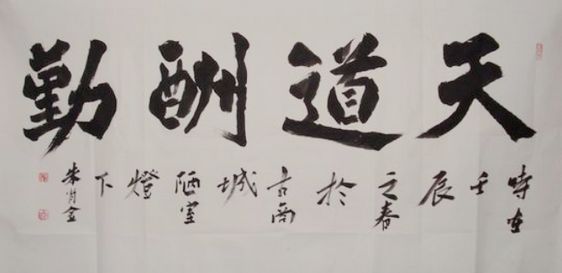 天道酬勤
時在壬辰之春於古商城陋室燈下
朱肖金